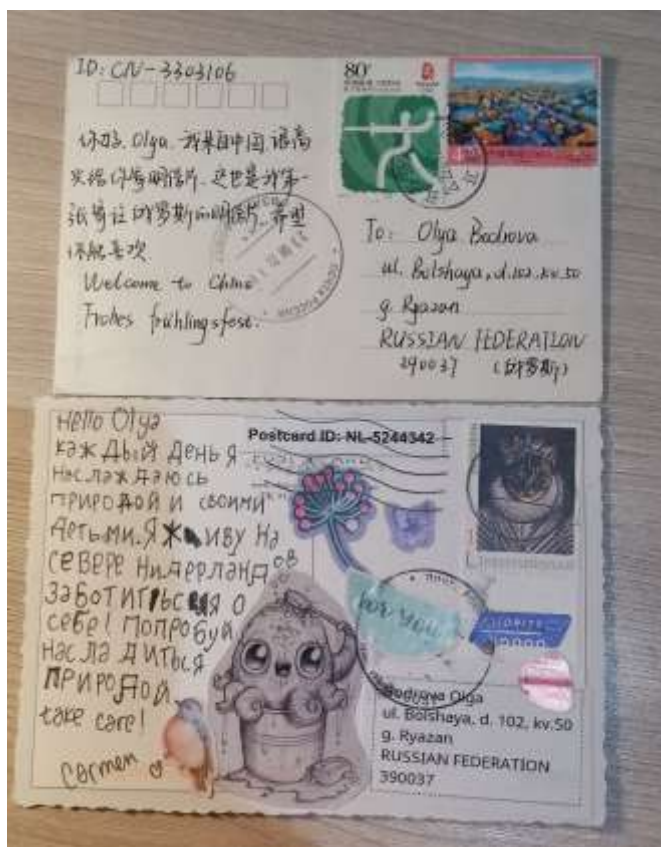 ID: CN-3303106
80
你好, Olga. 我来自中国, 很高
兴给你寄明信片. 这也是我第
一张寄往俄罗斯的明信片, 希望
你能喜欢.
Welcome to China
Frohes frühlingsfest.
To: Olya Bodrova
ul. Bolshaya, d.102, kv.50
g. Ryazan
RUSSIAN FEDERATION
390037 (俄罗斯)
Hello Olya
каждый день я
наслаждаюсь
природой и своими
детьми. Я живу на
севере Нидерландов
Заботиться о
себе! попробуй
насладиться
природой
take care!
Carmen
Postcard ID: NL-5244342
For You
PRIORITY
Bodrova Olga
ul. Bolshaya, d. 102, kv.50
g. Ryazan
RUSSIAN FEDERATION
390037